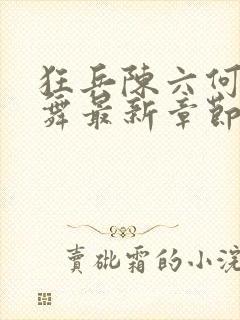 狂兵陳六何
舞最新章節
賣砒霜的小浣